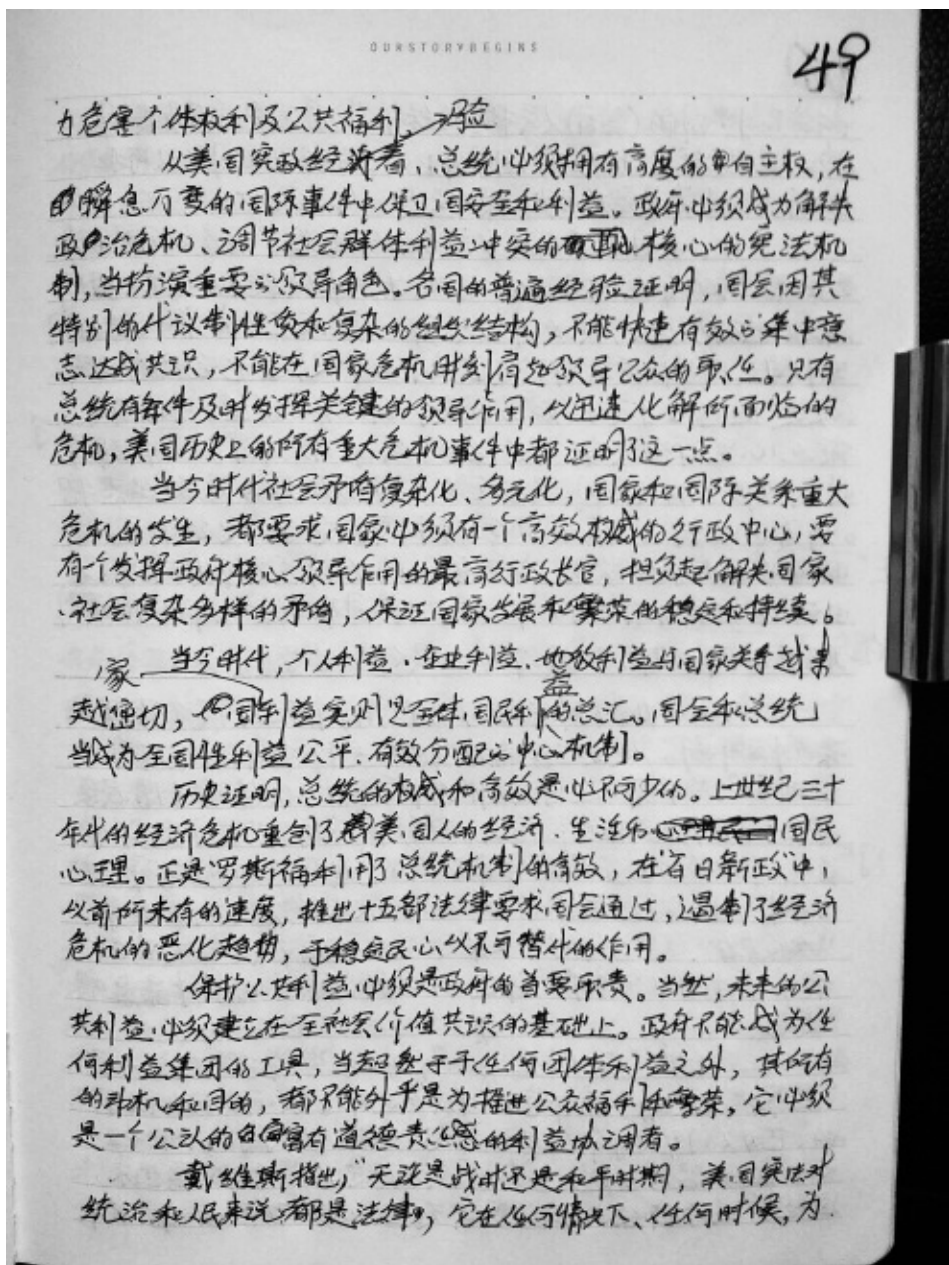 OURSTORYBEGINS
49
力危害个体权利及公共福利。
验
从美国宪政经济看、总统必须拥有高度的自主权,在
瞬息万变的国际事件中保卫国安全和利益。政府必须成为解决
政治危机、调节社会群体利益冲突的核心的宪法机
制,当扮演重要的领导角色。各国的普遍经验证明,国会因其
特别的代议制性质和复杂的组织结构,不能快速有效的集中意
志达成共识,不能在国家危机时刻肩起领导公众的职任。只有
总统有条件及时发挥关键的领导作用,以迅速化解所面临的
危机,美国历史上的所有重大危机事件中都证明了这一点。
当今时代社会矛盾复杂化、多元化,国家和国际关系重大
危机的发生,都要求国家必须有一个高效权威的行政中心,要
有一个发挥政府核心领导作用的最高行政长官,担负起解决国家
社会复杂多样的矛盾,保证国家发展和繁荣的稳定和持续。
当今时代,个人利益、企业利益、地方利益与国家关系越来
家
益
越密切,国利益实则是全体国民利的总汇。国会和总统
当成为全国性利益公平、有效分配的中心机制。
历史证明,总统的权威和高效是必不可少的。上世纪三十
年代的经济危机重创了美国人的经济、生活和国民
心理。正是罗斯福利用了总统机制的高效,在“百日新政”中,
以前所未有的速度,推出十五部法律要求国会通过,遏制了经济
危机的恶化趋势,于稳定民心以不可替代的作用。
保护公共利益必须是政府的首要职责。当然,未来的公
共利益必须建立在全社会价值共识的基础上。政府不能成为任
何利益集团的工具,当超然于于任何团体利益之外,其所有
的动机和目的,都不能外乎是为推进公众福利和繁荣,它必须
是一个公认的富有道德责任感的利益协调者。
戴维斯指出,“无论是战时还是和平时期,美国宪法对
统治和人民来说都是法律,它在任何情况下、任何时候,为